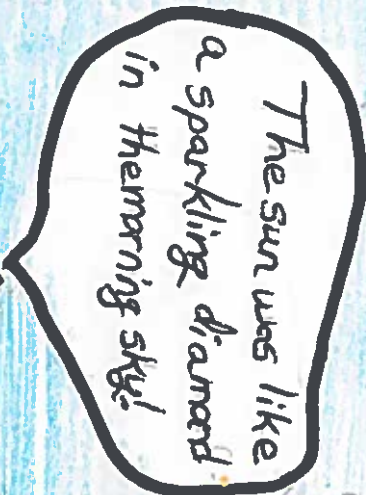 The sun was like
a sparkling diamond
in themorning sky!